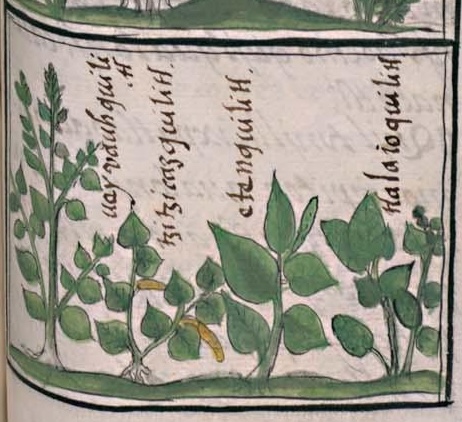 uey vauhquili
tl
tzitzicazquilitl.
etenquilitl.
tlalaioquilitl